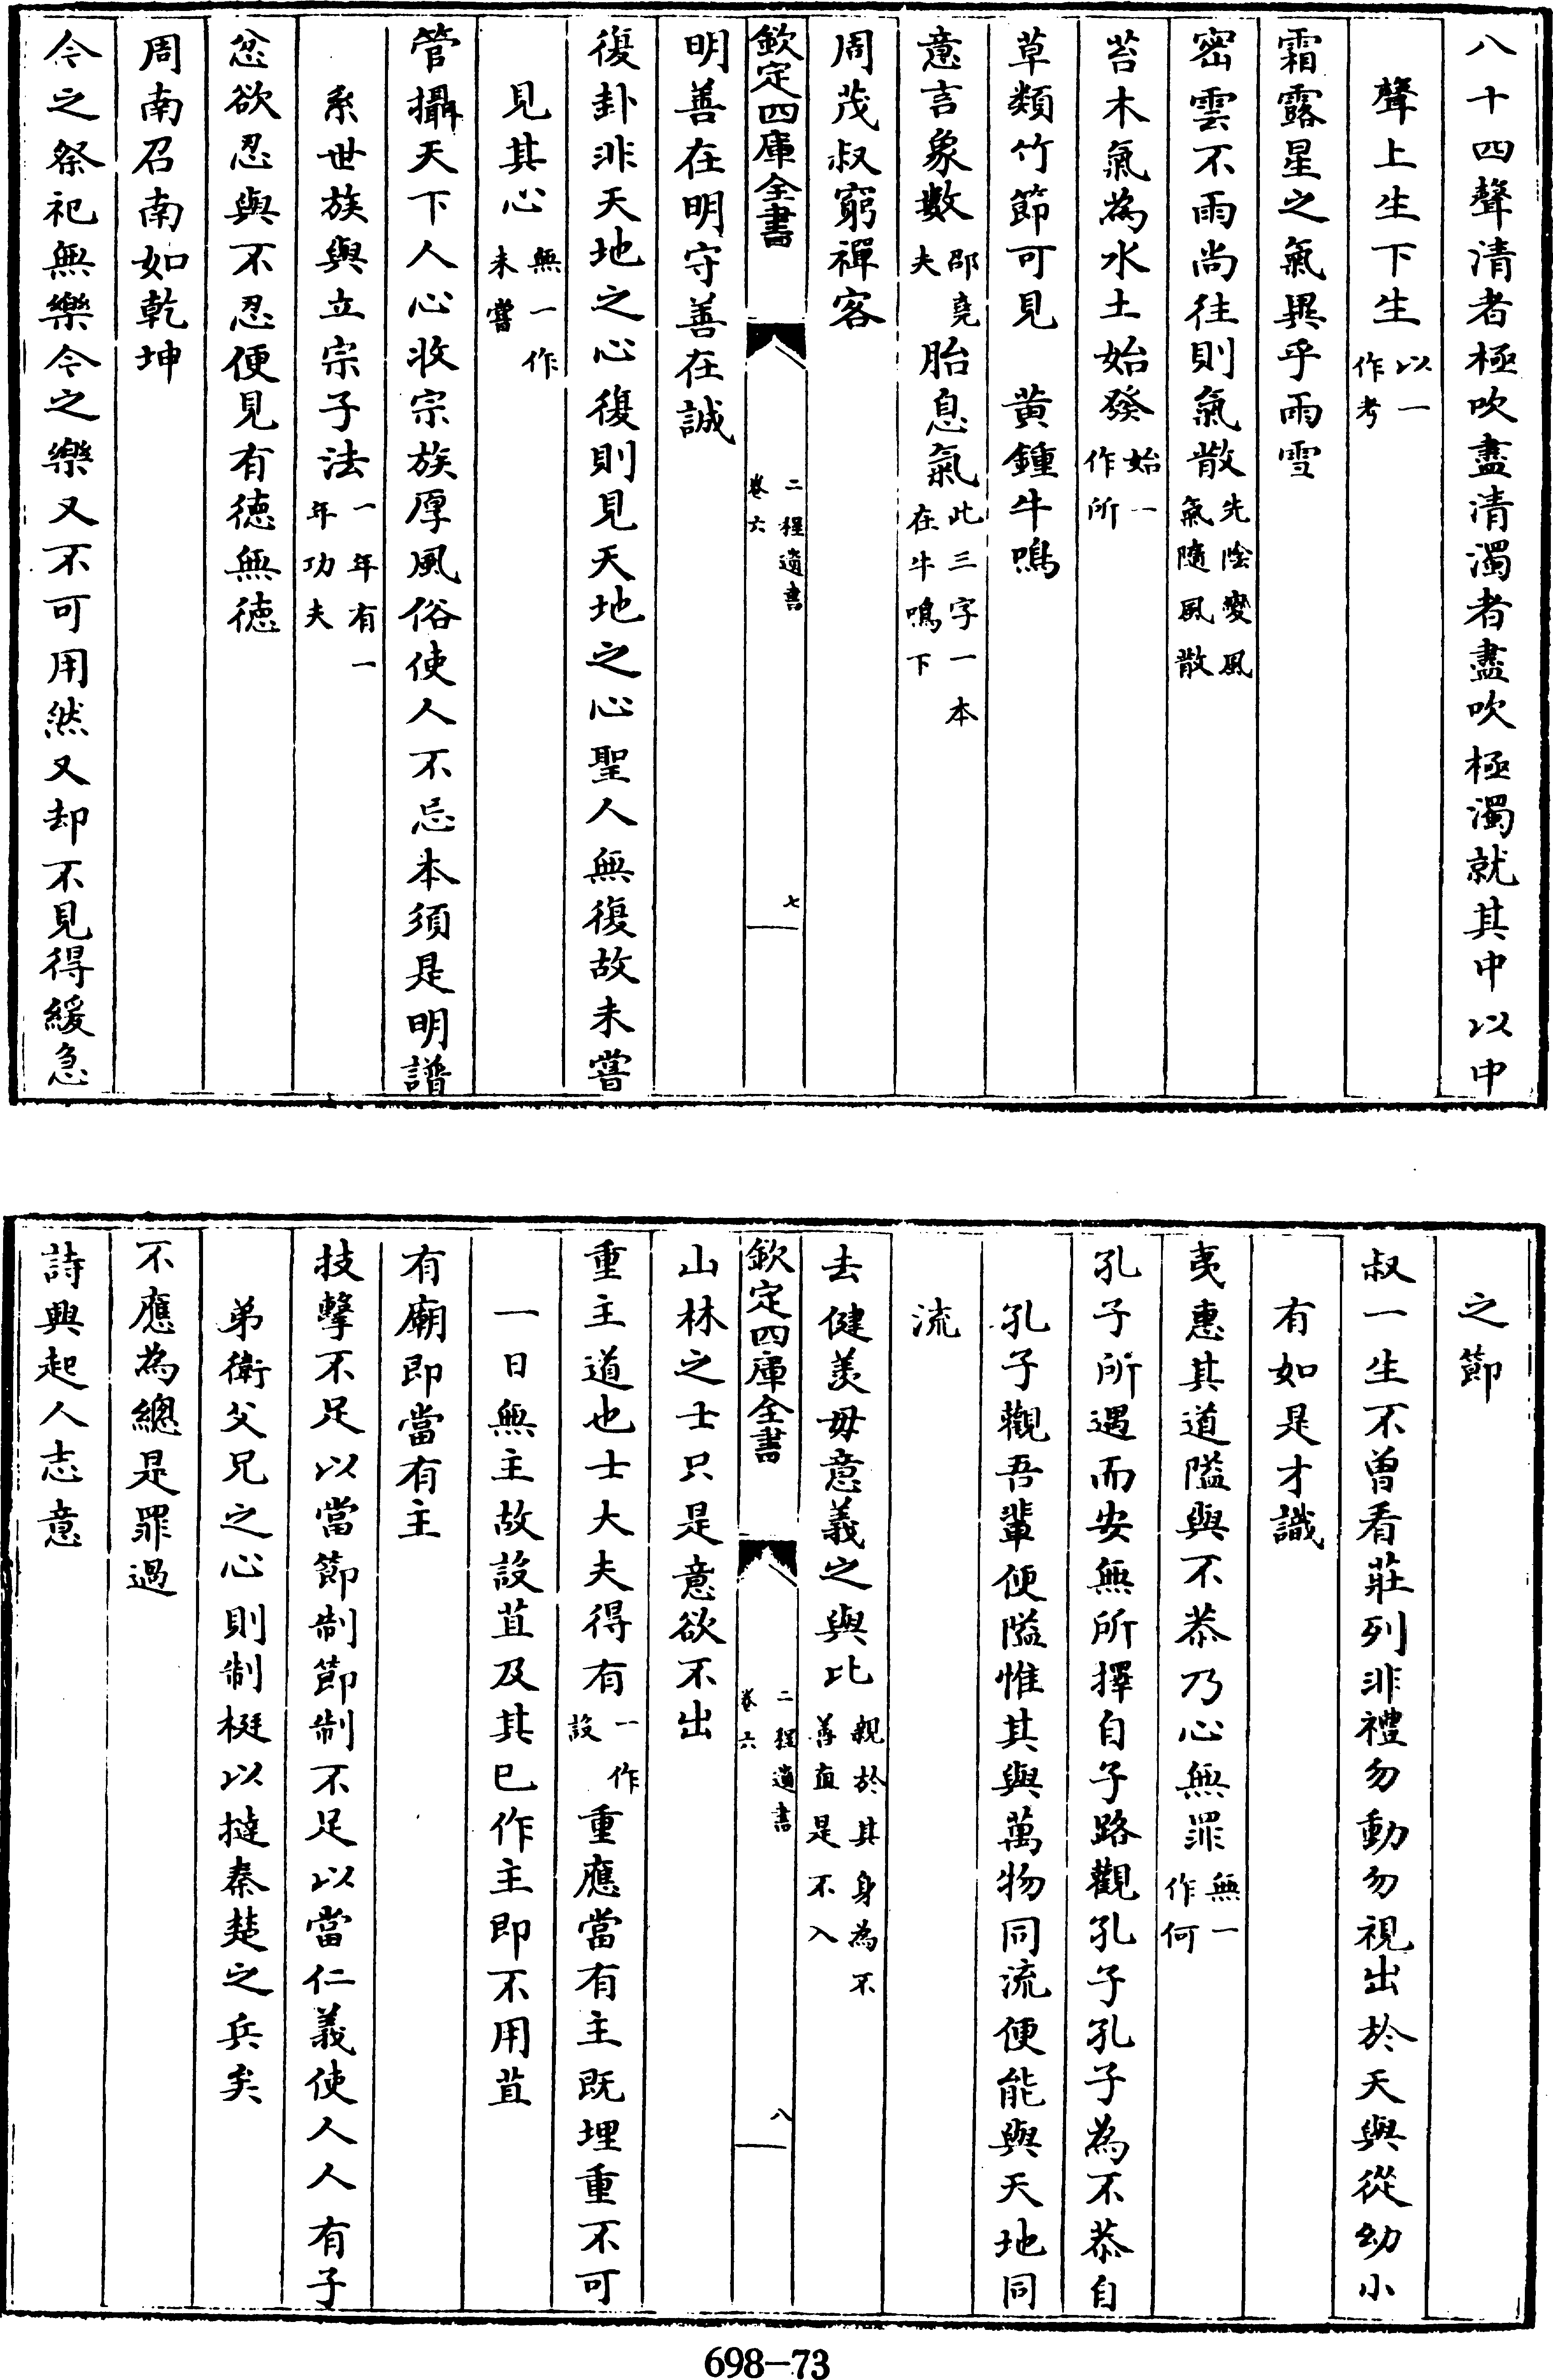 八十四聲清者極吹盡清濁者盡吹極濁就其中以中
聲上生下生以一作考
霜露星之氣異乎雨雪
密雲不雨尚往則氣散先陰變風氣隨風散
苔木氣為水土始發始一作所
草類竹節可見　黄鍾牛鳴
意言象數邵堯夫　胎息氣此三字一本在牛鳴下
周茂叔窮禪客
欽定四庫全書
二程遺書
卷六
七
明善在明守善在誠
復卦非天地之心復則見天地之心聖人無復故未嘗
見其心無一作未嘗
管攝天下人心收宗族厚風俗使人不忘本須是明譜
系世族與立宗子法一年有一年功夫
忿欲忍與不忍便見有徳無徳
周南召南如乾坤
今之祭祀無樂今之樂又不可用然又却不見得緩急
之節
叔一生不曾看莊列非禮勿動勿視出於天與從幼小
有如是才識
夷惠其道隘與不恭乃心無罪無一作何
孔子所遇而安無所擇自子路觀孔子孔子為不恭自
孔子觀吾輩便隘惟其與萬物同流便能與天地同
流
去健羡毋意義之與比親於其身為不善直是不入
欽定四庫全書
二程遺書
卷六
八
山林之士只是意欲不出
重主道也士大夫得有一作設　重應當有主既埋重不可
一日無主故設苴及其已作主即不用苴
有廟即當有主
技擊不足以當節制節制不足以當仁義使人人有子
弟衛父兄之心則制梃以撻秦楚之兵矣
不應為總是罪過
詩興起人志意
698-73